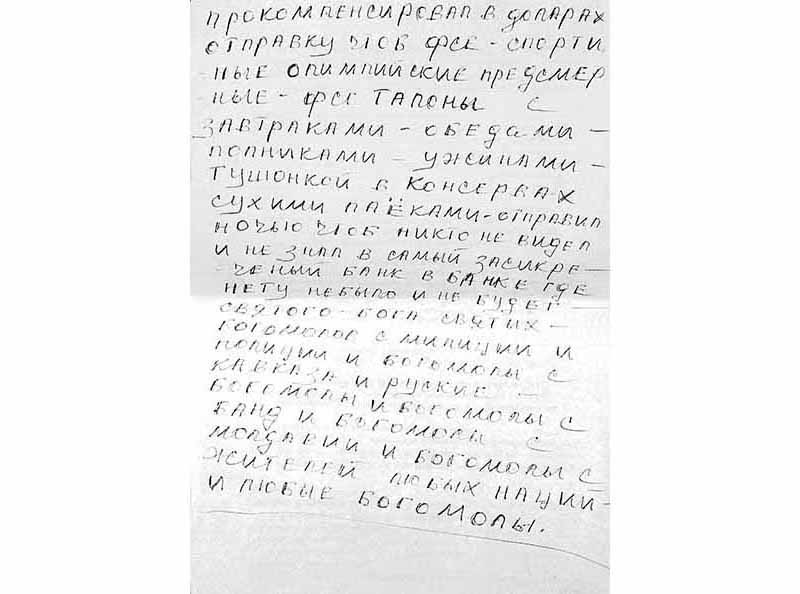 прокомпенсировал в доларах
отправку чтоб фсе - спорти
- ные олимпийские предсмер
- ные - фсе талоны с
завтраками - обедами -
полниками - ужинами -
тушонкой в консервах
сухими паёками - отправил
ночью чтоб никто не видел
и не знал в самый засикре -
- ченый банк в банке где
нету небыло и не будет -
святого - бога святих -
богомолов с милиции и
полиции и богомолы с
кавказа и руские -
богомолы и богомолы с
банд и богомолы с
молдавии и богомолы с
жителей любых нации -
и любые богомолы.